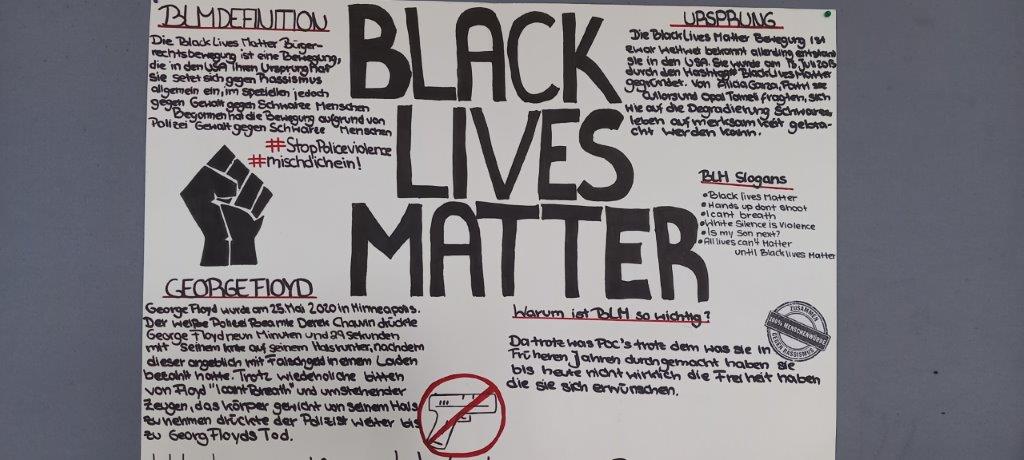 BLM DEFINITION
Die Black Lives Matter Bürger-
rechtsbewegung ist eine Bewegung,
die in den USA ihren Ursprung hat
Sie setzt sich gegen Rassismus
allgemein ein, im speziellen jedoch
gegen Gewalt gegen Schwarze Menschen
Begonnen hat die Bewegung aufgrund von
Polizei Gewalt gegen Schwarze Menschen
#StopPoliceviolence
#mischdichein!
BLACK
LIVES
MATTER
URSPRUNG
Die Black Lives Matter Bewegung ist
zwar weltweit bekannt allerding entstand
sie in den USA. Sie wurde am 13. Juli 2013
durch den Hashtag #BlackLivesMatter
gegründet. Von Alicia Garza,
Cullors und Opal Tometi fragten, sich
wie auf die Degradierung Schwarze
leben aufmerksamkeit gebra-
cht werden kann.
BLM Slogans
•Black lives Matter
•Hands up dont shoot
•I cant breath
•White Silence is Violence
•Is my Son next?
•All lives can't Matter
until Black lives Matter
GEORGE FLOYD
George Floyd wurde am 25. Mai 2020 in Minneapolis.
Der weiße Polizei Beamte Derek Chauvin drückte
George Floyd neun Minuten und 29 sekunden
mit seinem knie auf seinen Hals runter, nachdem
dieser angeblich mit Falschgeld in einem Laden
bezahlt hatte. Trotz wiederholte bitten
von Floyd "I cant Breath" und umstehender
Zeugen, das körper gewicht von seinem Hals
zu nehmen drückte der Polizist weiter bis
zu Georg Floyds Tod.
Warum ist BLM so wichtig?
Da trotz was PoC's trotz dem was sie in
Früheren Jahren durchgemacht haben sie
bis heute nicht wirklich die Freiheit haben
die sie sich erwünschen.
ZUSAMMEN
100% MENSCHENWÜRDE
GEGEN RASSISMUS